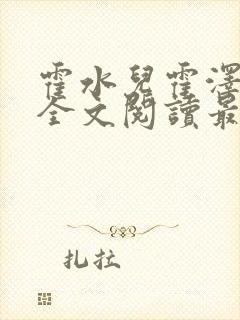 霍水兒霍澤
全文閱讀最
扎拉